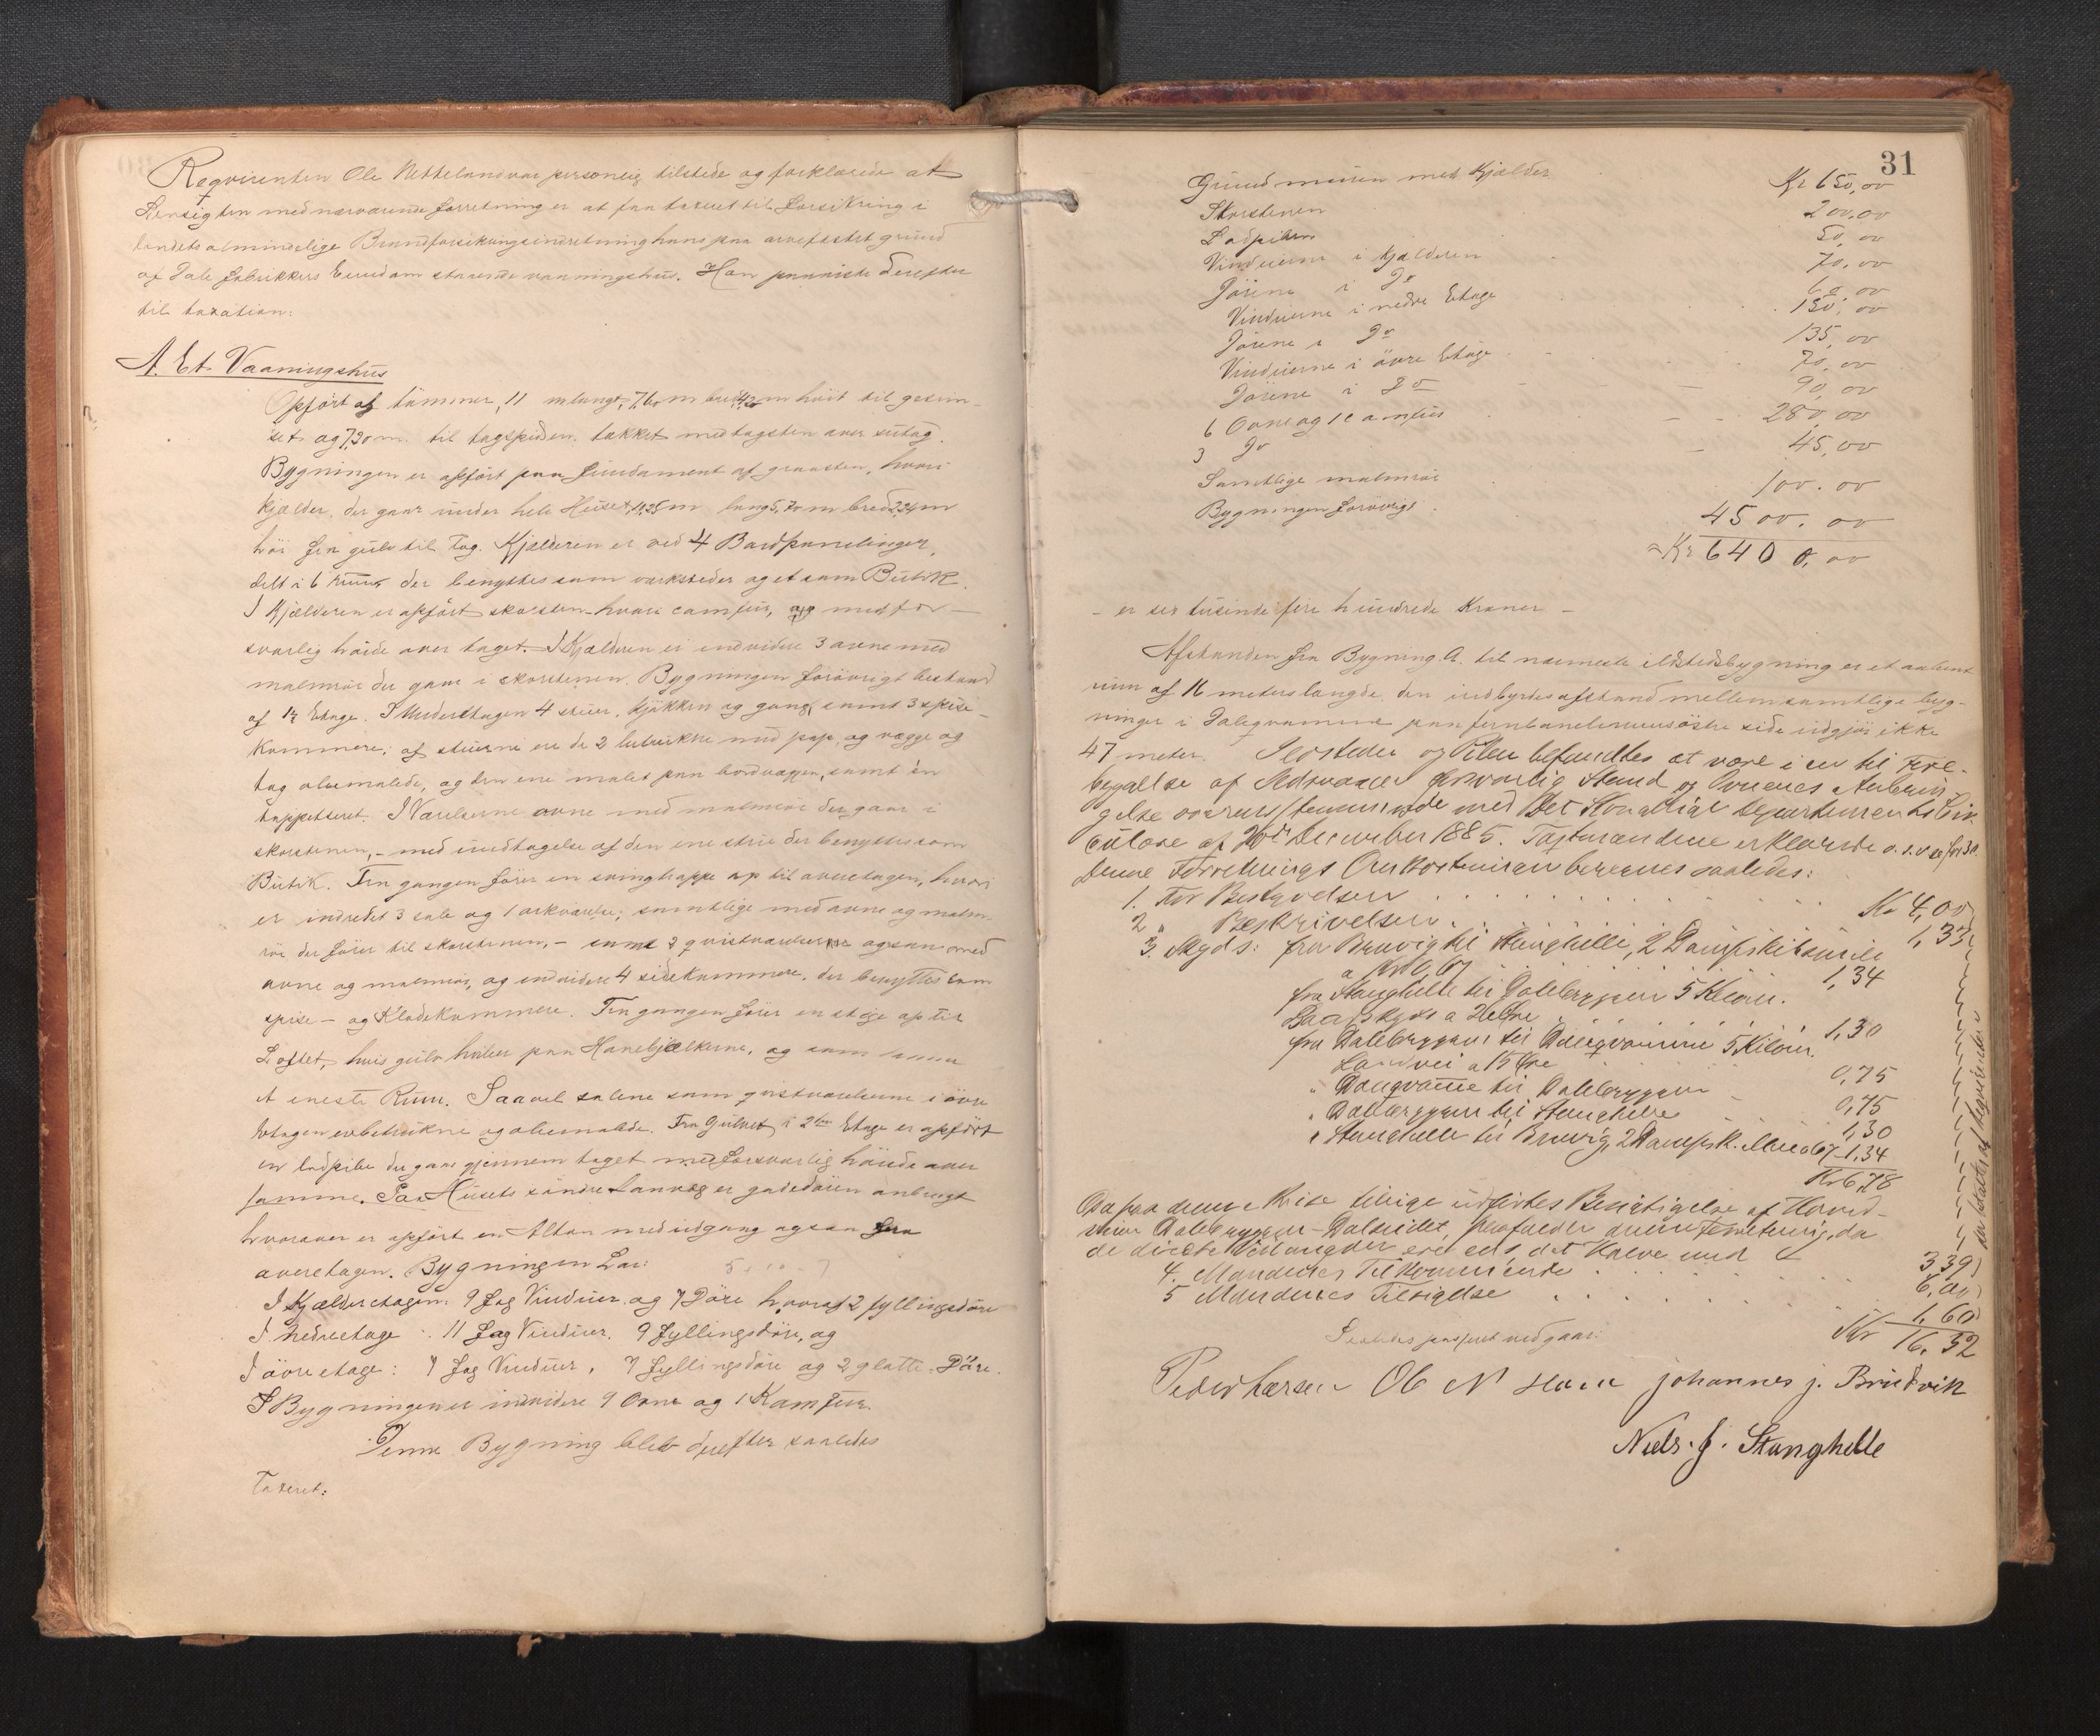 Reqvirenten Ole Netteland var personlig tilstede og forklarede at
Hensigten med nærværende Forretning er at faa taxeret til Forsikring i
Landets almindelige Brandforsikringsindretning hans paa arvefæstet grund
af Dale Fabrikkers Eiendom staaende vaaningshus. Han paaviste derefter
til taxation:
A. Et Vaaningshus
Opført af tømmer, 11 m langt, 7,60 m bredt, 4,20 m høit til gesim-
set og 7,20 m. til tagspidsen. takket med tagsten over sutag.
Bygningen er opført paa Fundament af graasten, hvori
Kjælder, der gaar under hele Huset, 10,25 m lang 5,70 m bred 2,24 m
høi fra gulv til Tag. Kjælderen er ved 4 Bordpanelinger,
delt i 6 Rum, der benyttes som værksteder og et som Butik.
I Kjælderen er opført skorsten hvori camfur, og med for-
svarlig høide over taget. I Kjælderen er endvidere 3 ovne med
malmrør der gaar i skorstenen. Bygningen forøvrigt bestaaer
af 1½ Etage. I Underetagen 4 stuer, kjøkken og gang, samt 3 spise-
kammere; af stuerne ere de 2 betrukne med pap, og vægge og
tag oliemalede, og den ene malet paa bordvæggen, samt én
tappetseret. I Værelserne ovne med malmrør der gaar i
skorstenen, - med undtagelse af den ene stue der benyttes som
Butik. Fra gangen fører en svingtrappe op til overetagen, hvori
er indredet 3 sale og 1 arkværelse; samtlige med ovne og malm-
rør der fører til skorstenen, - samt 2 qvistværelserne ogsaa med
ovne og malmrør, og endvidere 4 sidekammere, der benyttes som
spise- og Klædekammere. Fra gangen fører en stige op til
Loftet, hvis gulv hviler paa Hanebjælkerne, og som
et eneste Rum. Saavel salene som qvistværelserne i øvre
Etagen er betrukne og oliemalede. Fra Gulvet i 2den Etage er opført
en ladpibe der gaar gjennem taget med forsvarlig høide over
samme. Paa Husets søndre Langvæg er gadedøren anbragt
hvorover er opført en Altan med udgang ogsaa fra
overetagen. Bygningen har:
I Kjælderetagen: 9 Fag Vinduer og 7 Døre hvoraf 2 fyllingsdøre
I. nedre etage : 11 Fag Vinduer. 9 Fyllingsdøre, og
I øvre etage: 7 Fag Vinduer, 7 Fyllingsdøre og 2 glatte Døre.
I Bygningen er indvidere 9 Ovne og 1 Kamfur.
Denne Bygning blev derefter saaledes
Taxeret:
31
Grundmuren med Kjælder Kr 650,00
Skorstenen 200,00
Ladpiben 50,00
Vinduerne i Kjælderen 70,00
Dørene i Do 60,00
Vinduerne i nedre Etage 150,00
Dørene i Do 135,00
Vinduerne i øvre Etage 70,00
Dørene i Do 90,00
6 Ovne og 1 camfur 280,00
3 Do 45,00
Samtlige malmrør 100.00
Bygningen forøvrigt 4500.00
Kr 6400,00
- er sex tusinde fire hundrede Kroner -
Afstanden fra Bygning A. til nærmeste ildstedsbygning er et aabent
rum af 16 meters længde. den indbyrdes afstand mellem samtlige byg-
ninger i Daleqvamme paa jernbanelinniens østre side udgjør ikke
47 meter. Ildsteder og Piber befandtes at være i en til Fore-
byggelse af Ildsvaade forsvarlig Stand og Ovnenes Anbrin-
gelse overensstemmende med Det Kongelige Departements Cir-
culære af 20de December 1885. Taxtmændene erklærede o.s.v. se fol 30.
Denne Forretnings Omkostninger beregnes saaledes:
1. For Bestyrelsen Kr 4,00
2 " Beskrivelsen 1,33
3. Skyds: fra Bruvig til Stanghelle, 2 Dampskibsmile
a Kr 0,67 1,34
fra Stanghelle til Dalebryggen 5 Kilom.
Baadskyds a 26 Øre 1,30
fra Dalebryggen til Daleqvamme 5 Kilom.
Landvei a 15 Øre 0,75
" Daleqvamme til Dalebryggen 0,75
" Dalebryggen til Stanghelle 1,30
" Stanghelle til Bruvig, 2 Dampsk. Mile a 67 - 1,34
Kr 6,78
Da paa denne Reise tillige udførtes Besigtigelse af Hoved-
veien Dalebryggen-Dalseidet, paafalder denne Forretning, da
de directe Veilængder ere ens, det Halve med 3 39
4. Mændenes Tilkommende 6,00
5 Mændenes Tilsigelse 1,60
Kr 16,32
der betaltes af Reqvirenten
Peder Larsen Ole N Johannes j. Brudvik
Niels. J. Stanghelle